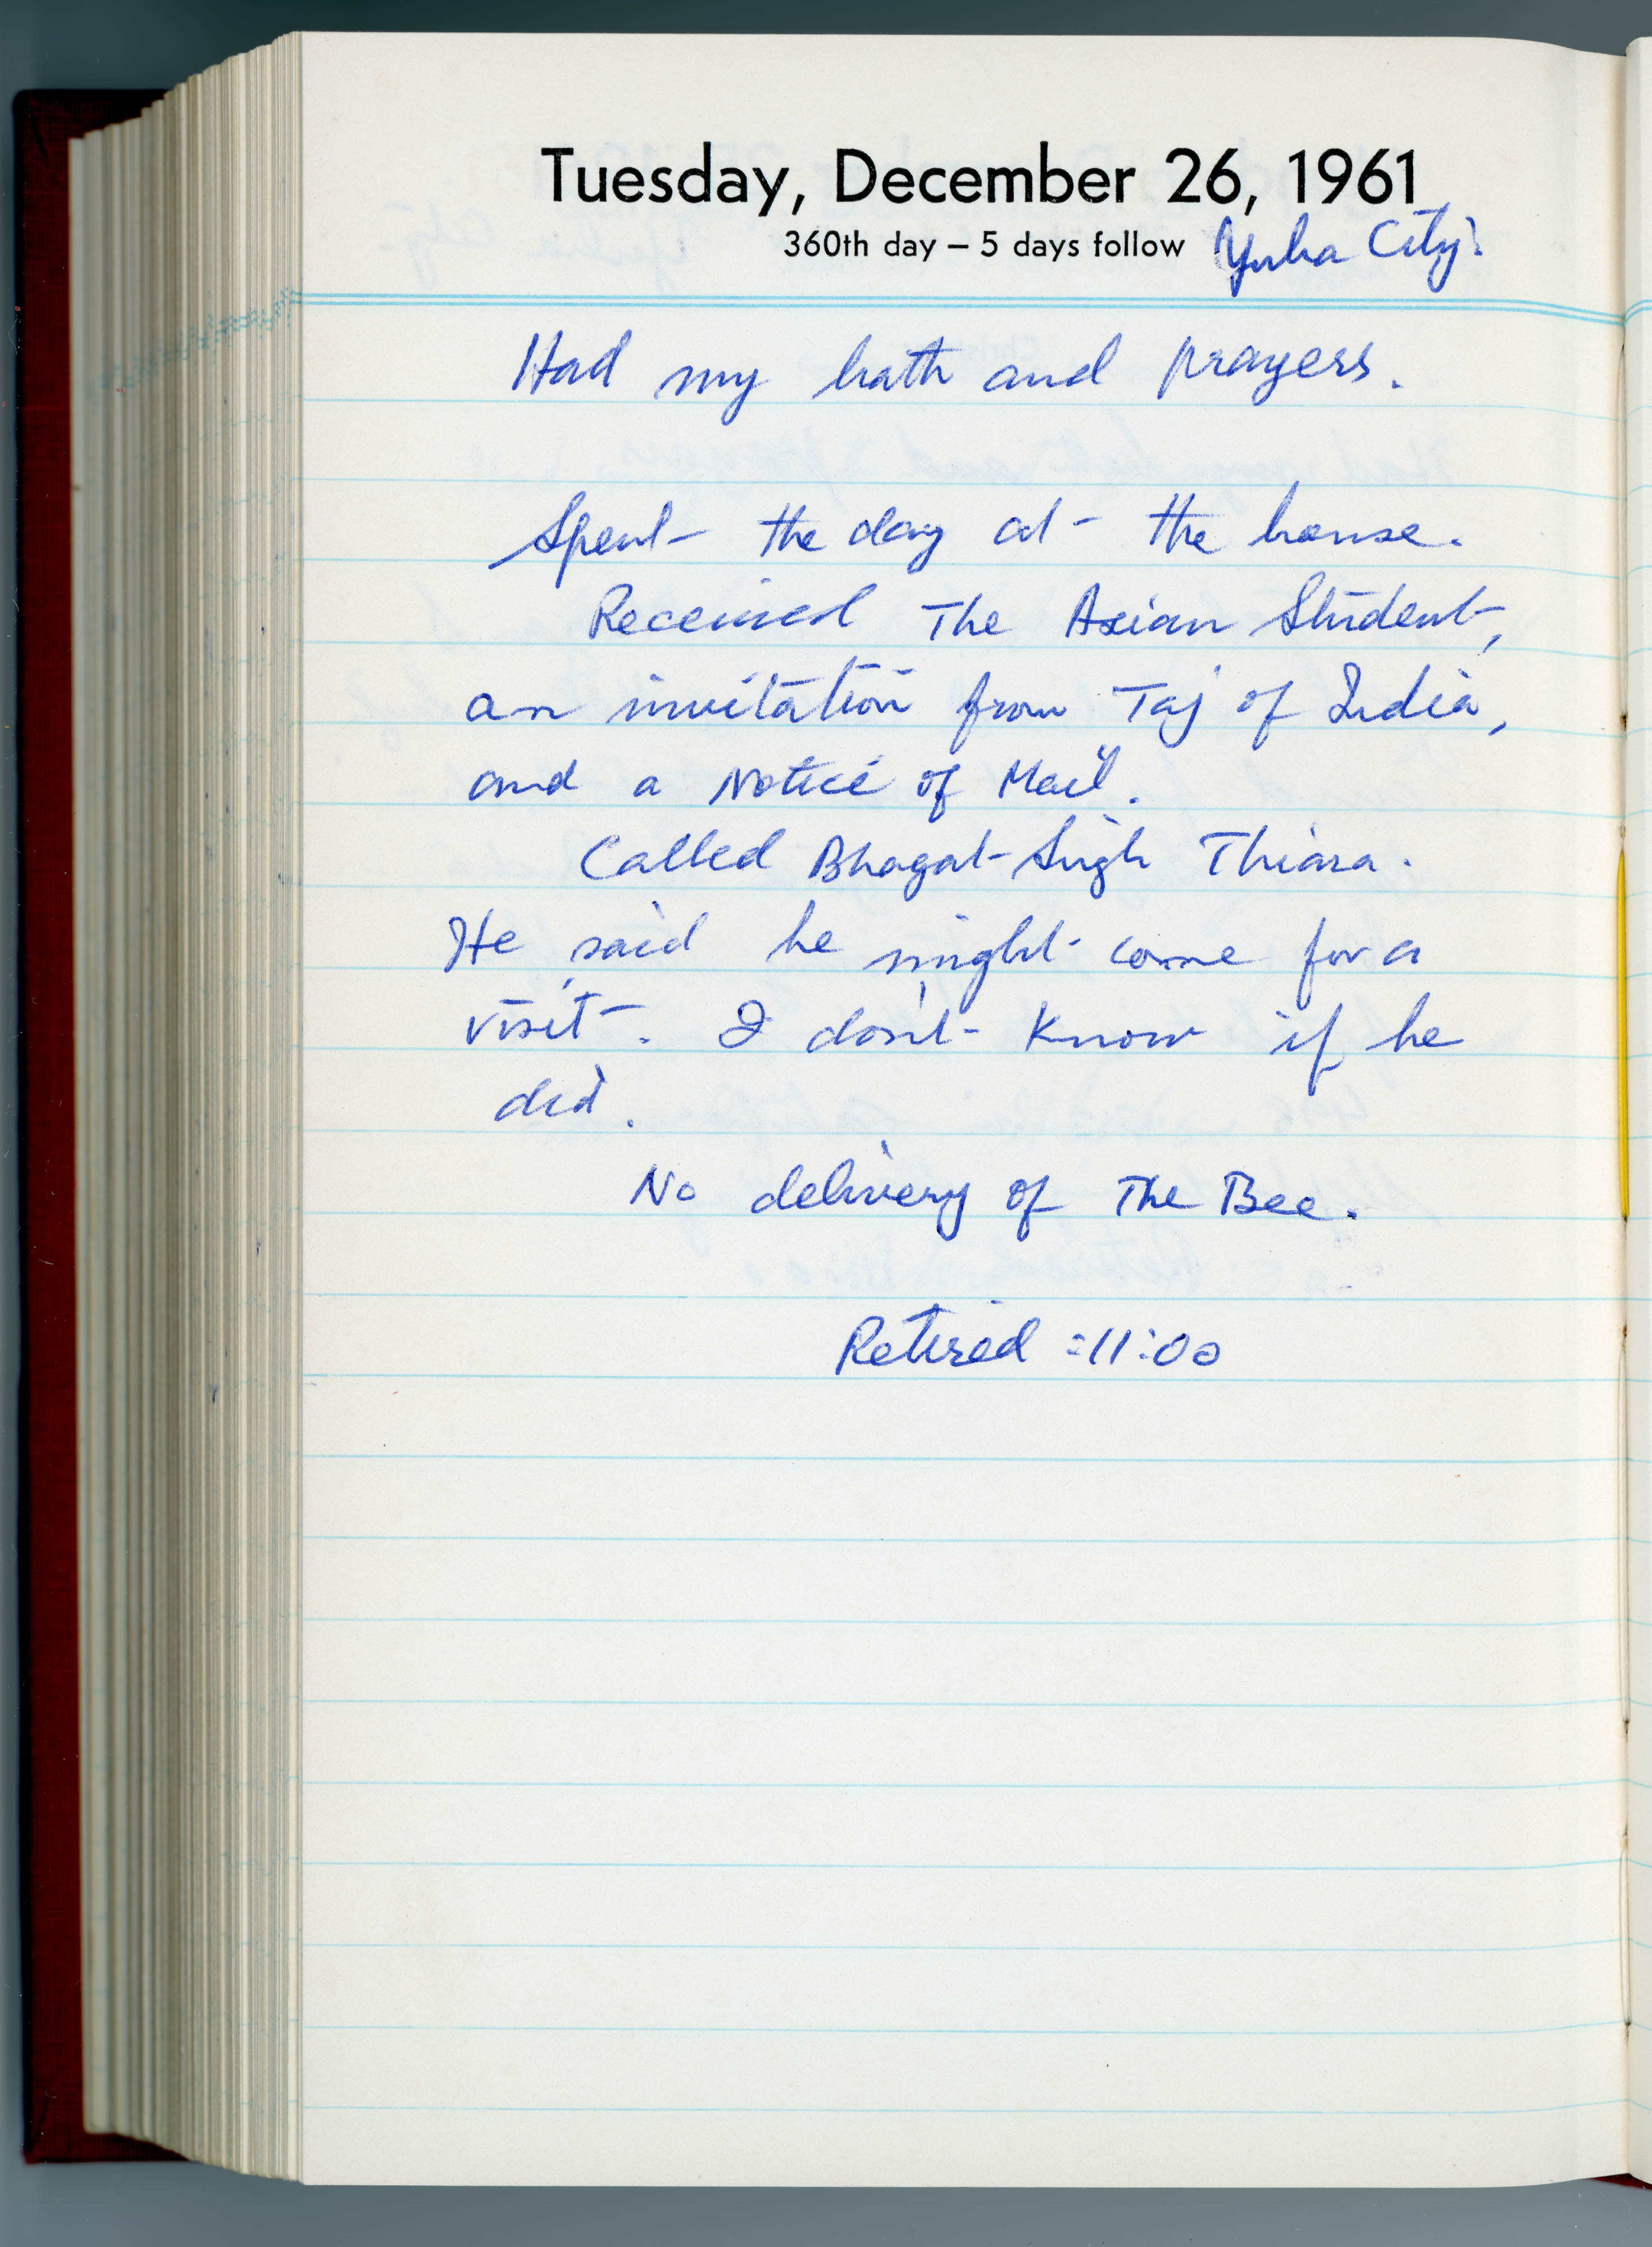 Tuesday, December 26, 1961
360th day – 5 days follow Yuba City.
Had my bath and prayers.
Spent the day at the house.
Received The Asian Student,
an invitation from Taj of India,
and a Notice of Mail.
Called Bhagat Singh Thiara.
He said he might come for a
visit. I don't know if he
did.
No delivery of The Bee.
Retired :11:00